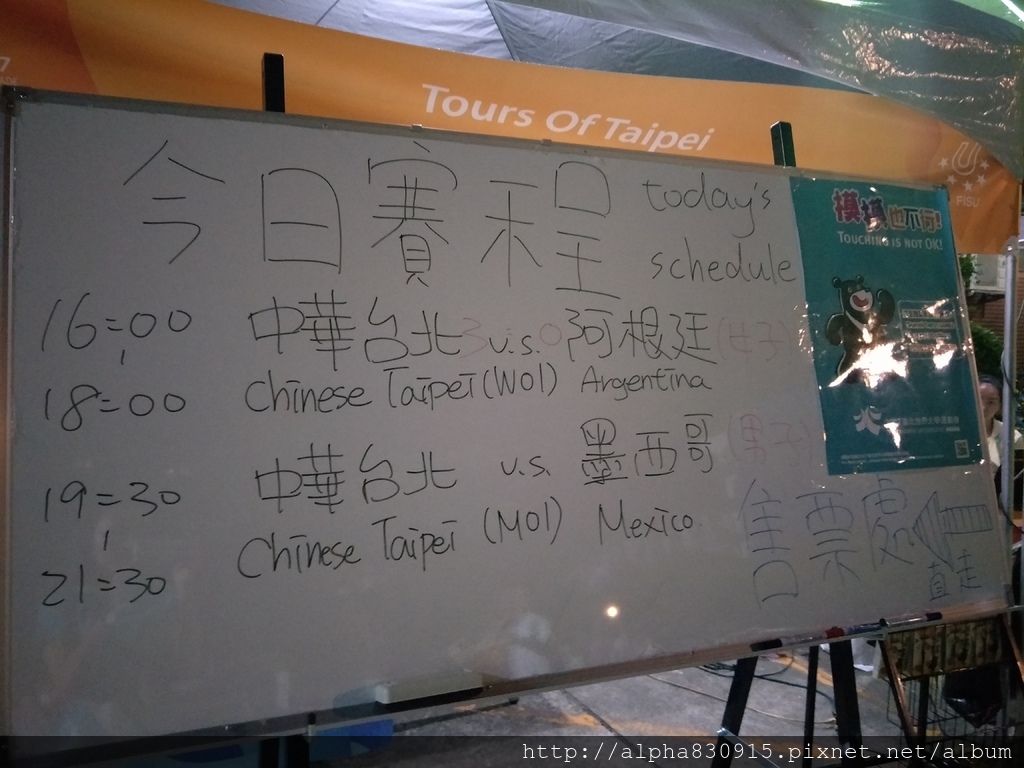 7
Tours Of Taipei
FISU
今日賽程 today's schedule
模摸也不行!
TOUCHING IS NOT OK!
16:00
|
18:00
中華台北 3 v.s. 0 阿根廷 (女子)
Chinese Taipei (W01) Argentina
19:30
|
21:30
中華台北 v.s. 墨西哥 (男子)
Chinese Taipei (M01) Mexico
售票處
直走
http://alpha830915.pixnet.net/album